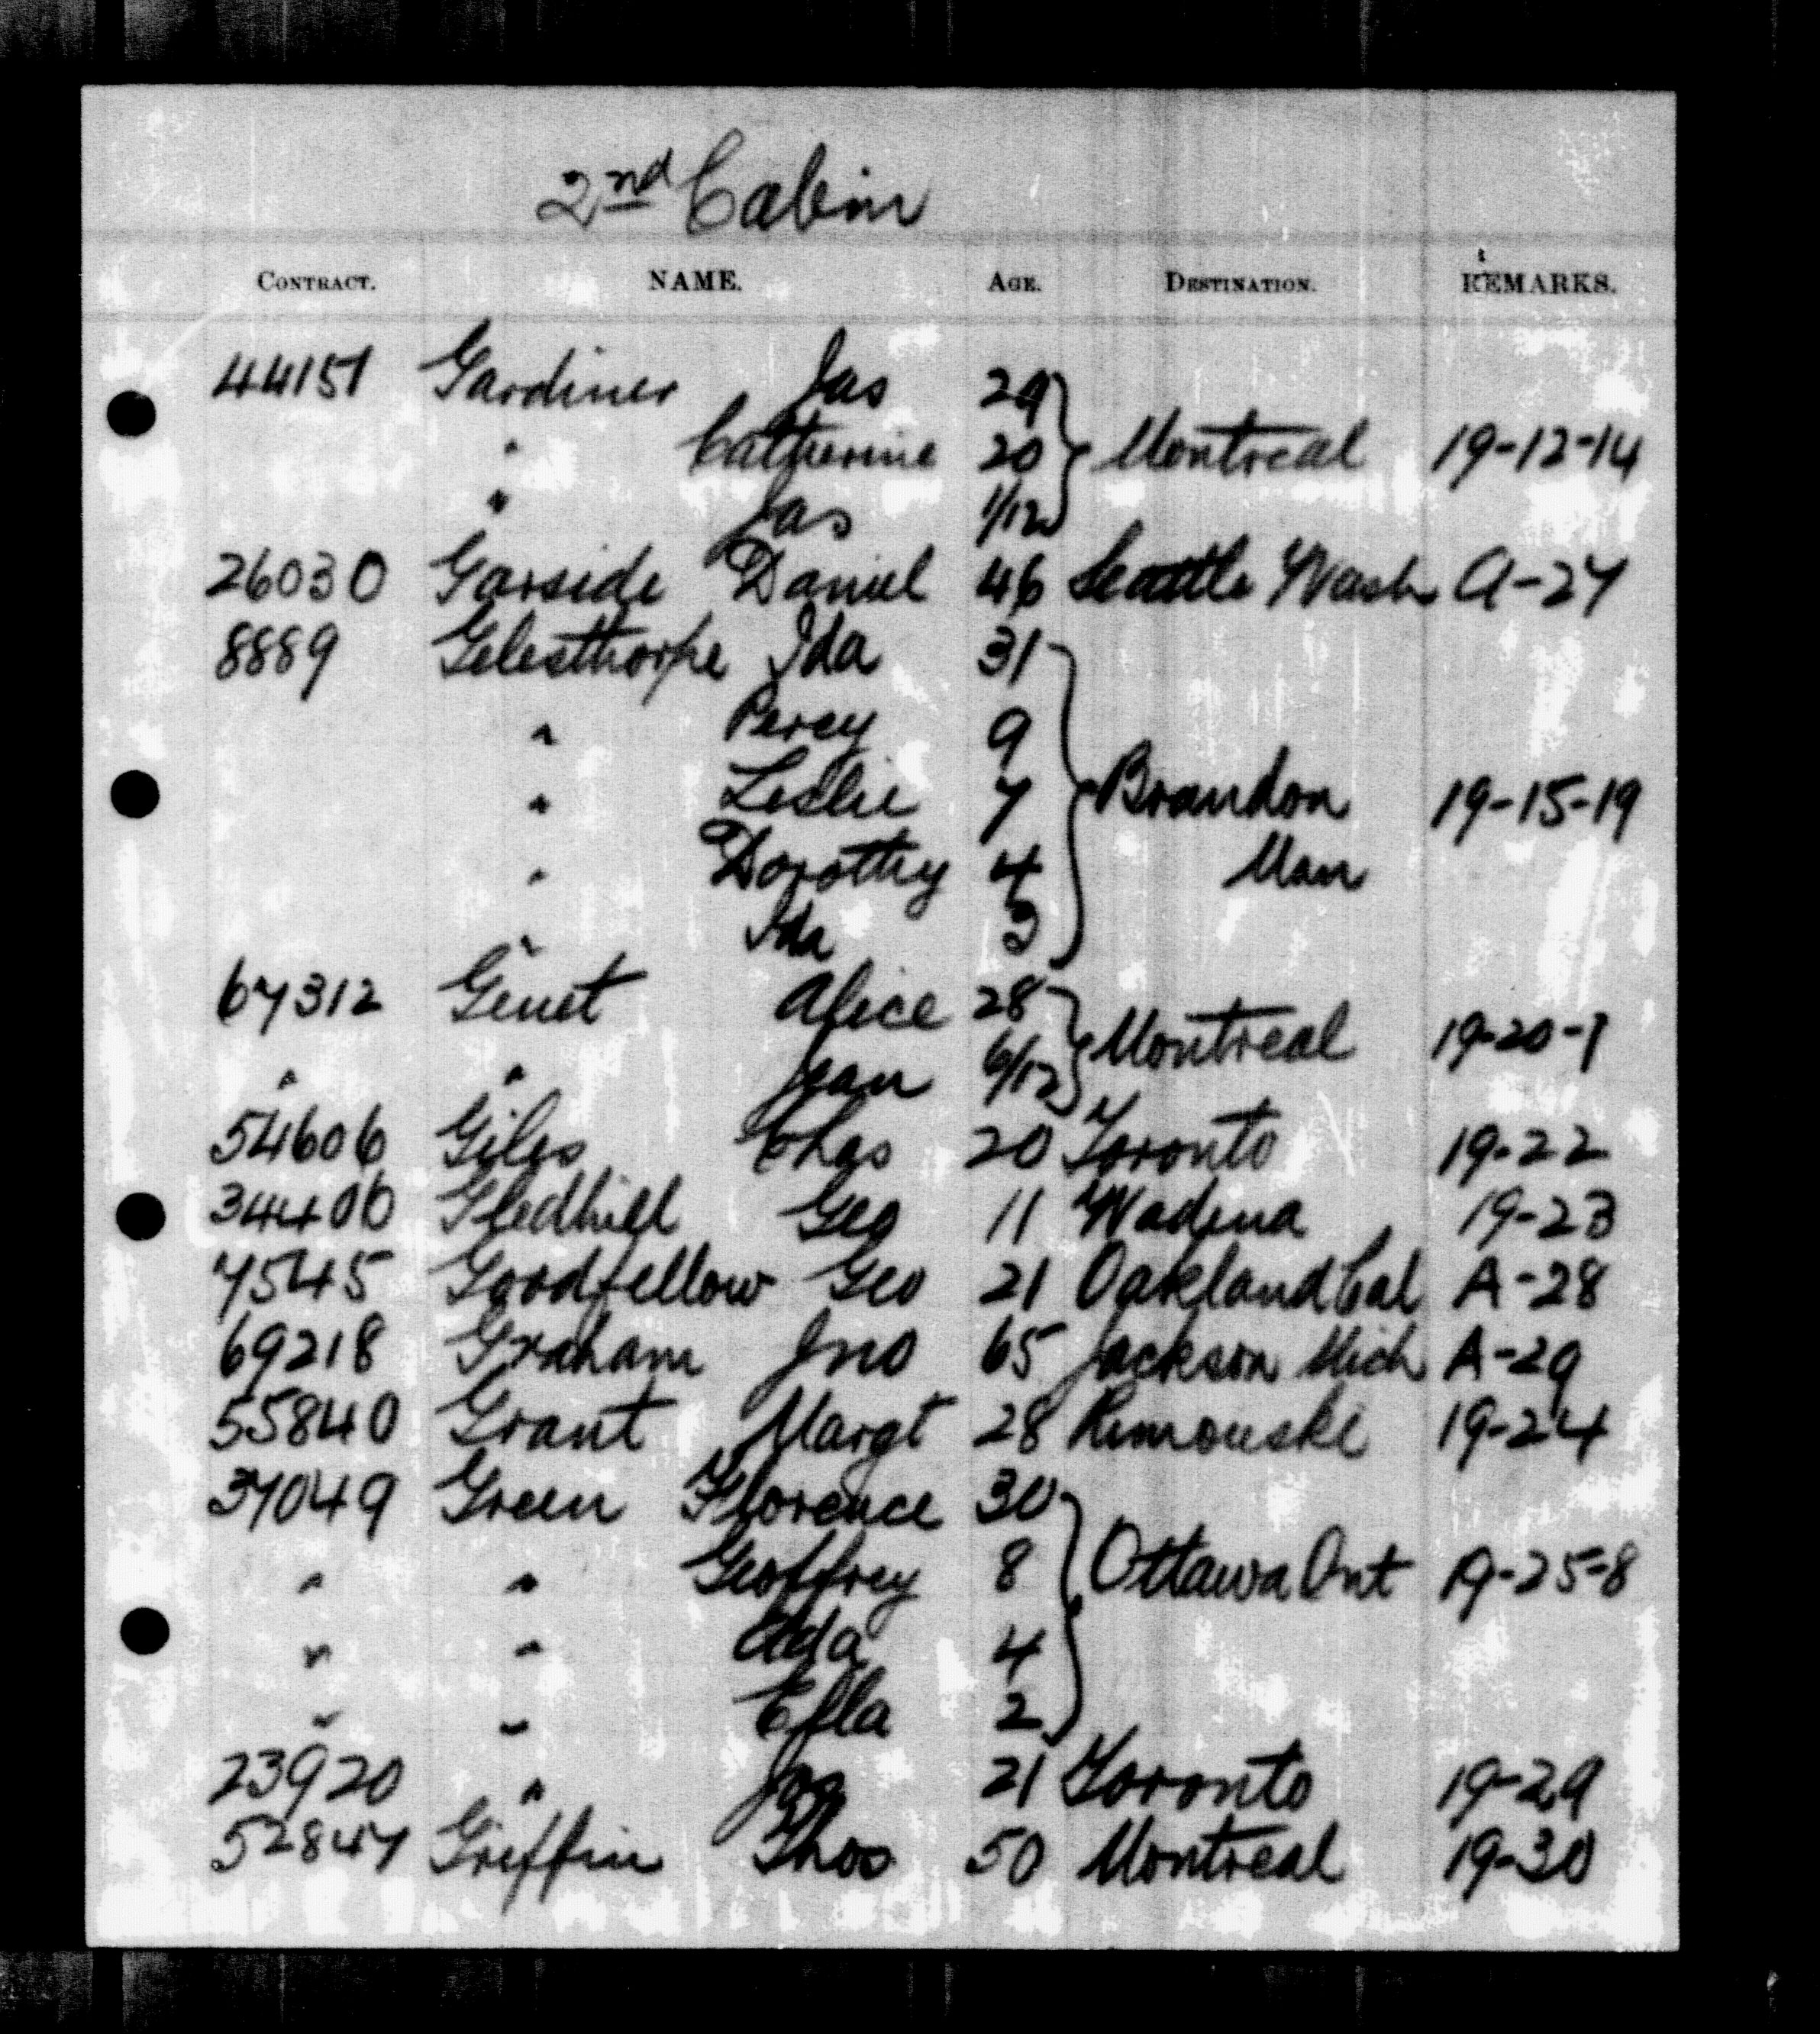 2nd Cabin
CONTRACT. NAME. AGE. DESTINATION. REMARKS.
44151 Gardiner Jas 29
" Catherine 20 Montreal 19-12-14
" Jas 1/12
26030 Garside Daniel 46 Seattle Wash A-27
8889 Gelesthorpe Ida 31
" Percy 9
" Leslie 7 Brandon 19-15-19
" Dorothy 4 Man
" Ida 3
67312 Genet Alice 28 Montreal 19-20-1
" " Jean 6/12
54606 Giles Chas 20 Toronto 19-22
34406 Gledhill Geo 11 Wadena 19-23
7545 Goodfellow Geo 21 Oakland Cal A-28
69218 Graham Jno 65 Jackson Mich A-29
55840 Grant Margt 28 Rimouski 19-24
37049 Green Florence 30
" " Geoffrey 8 Ottawa Ont 19-25-8
" " Ada 4
" " Ella 2
23920 " Jas 21 Toronto 19-29
52847 Griffin Thos 50 Montreal 19-30